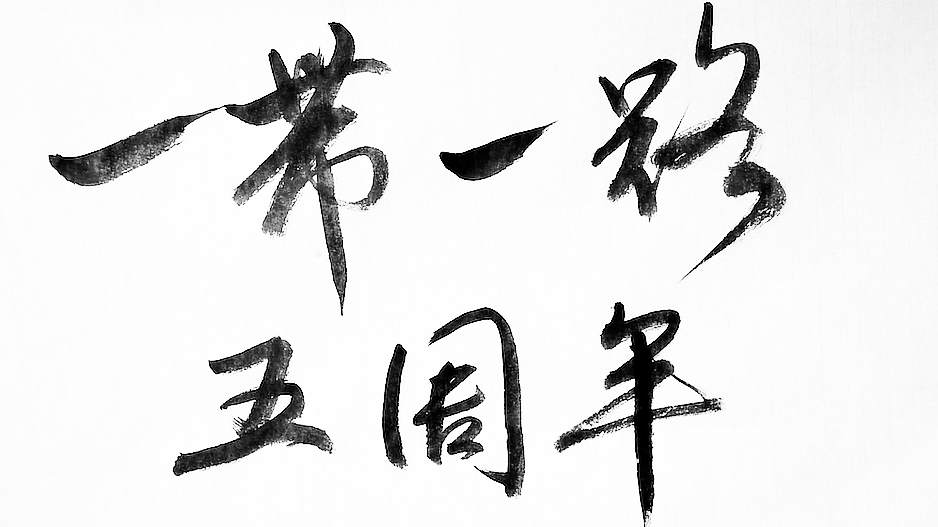 一带一路
五周年